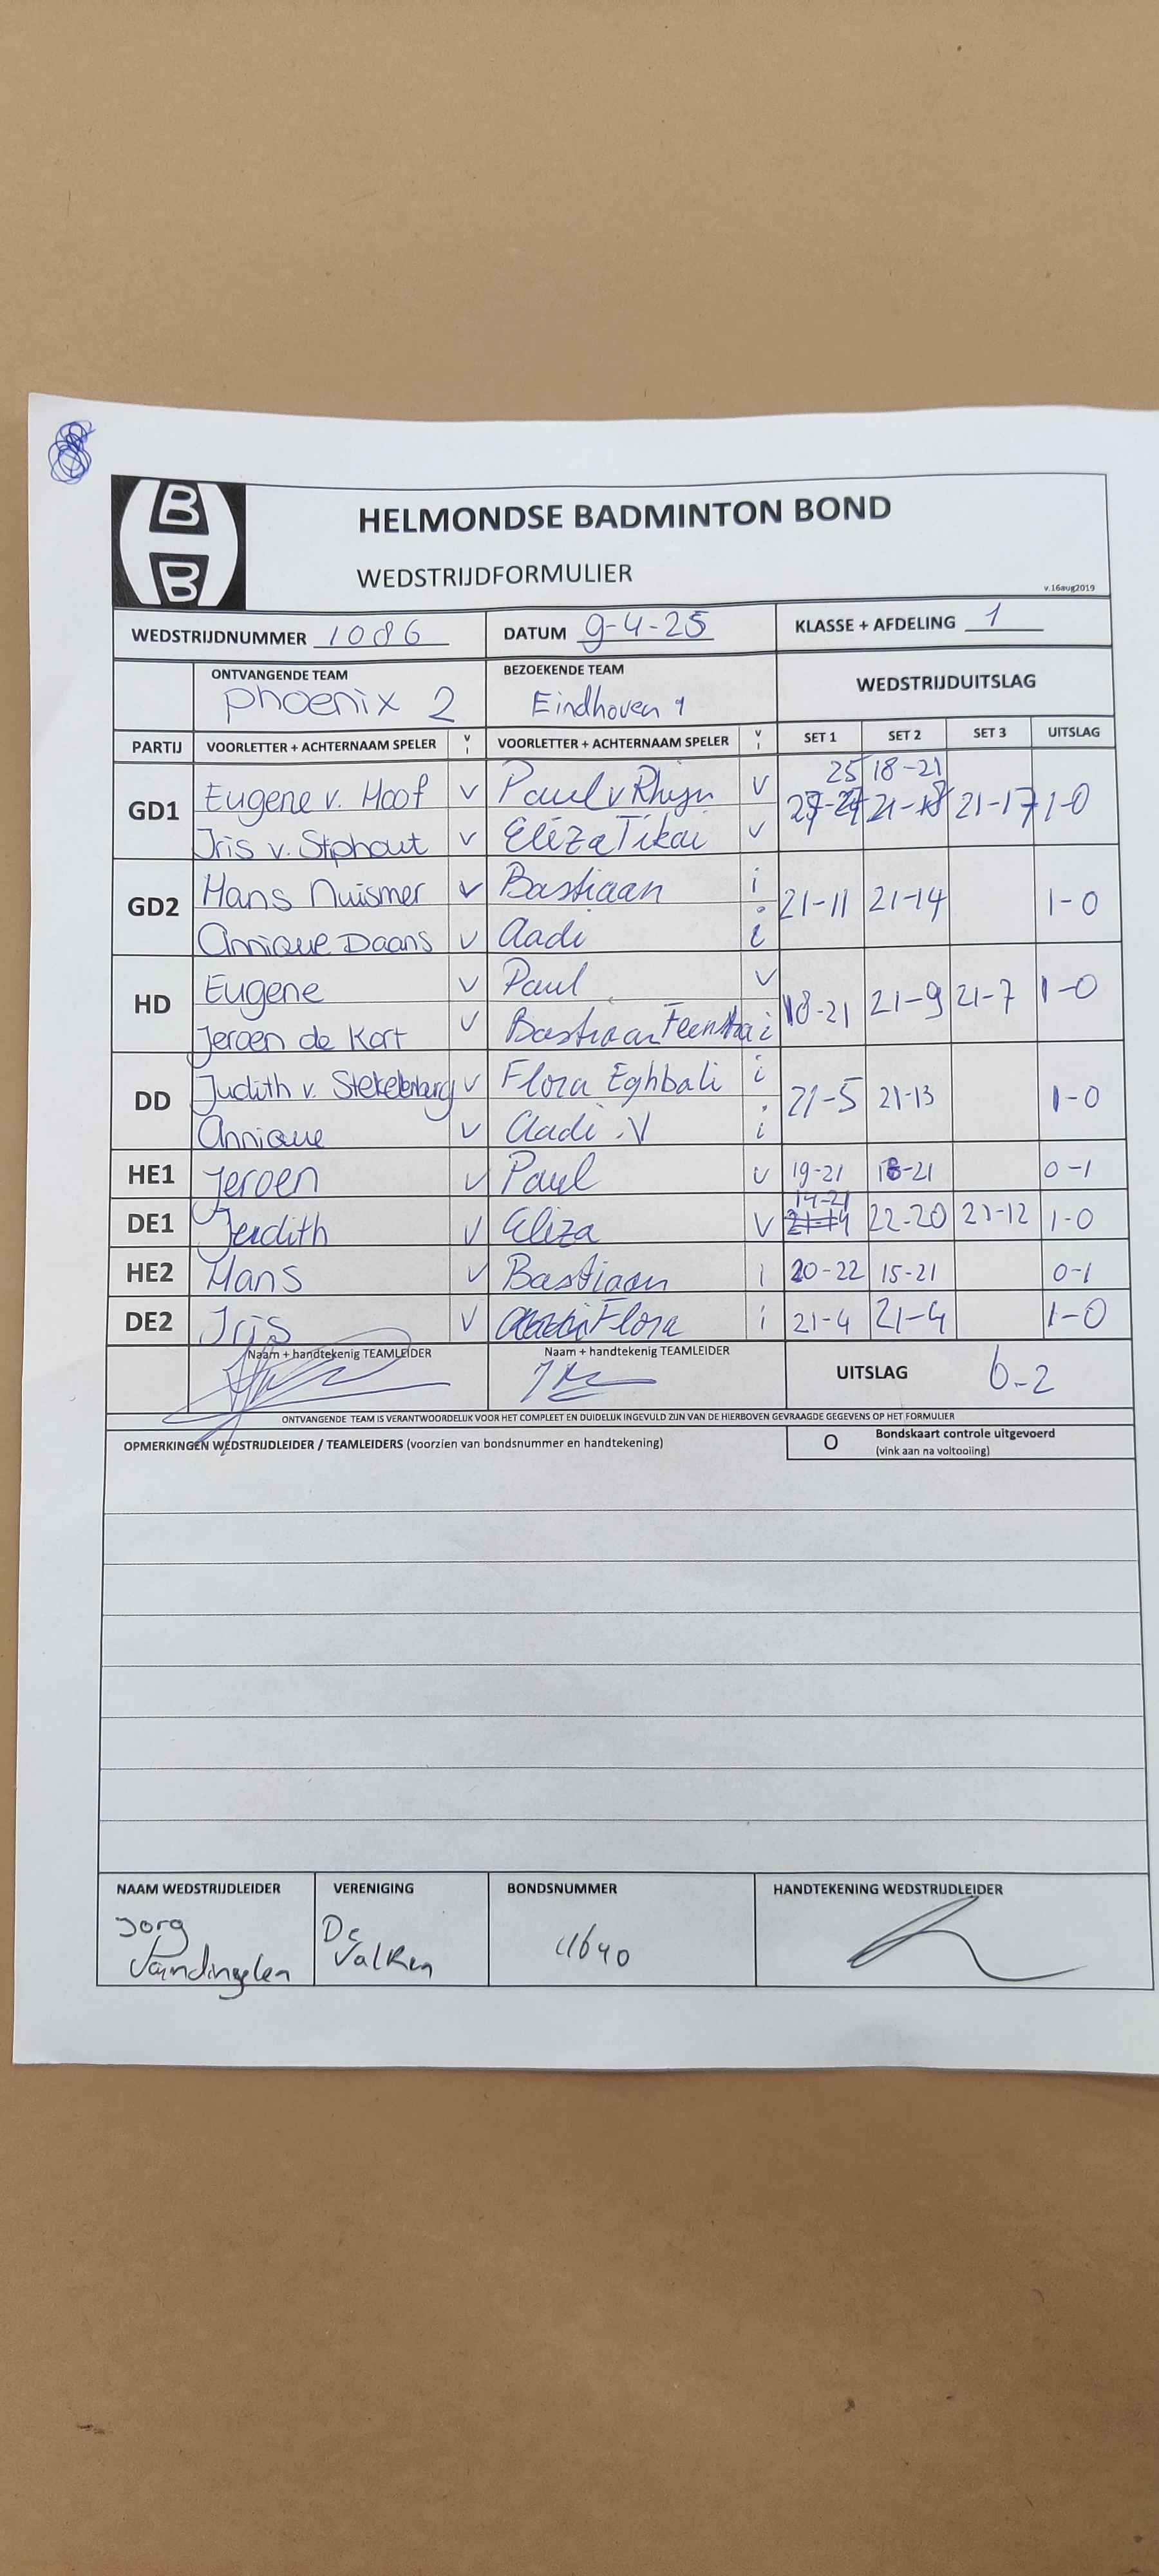 B
B
HELMONDSE BADMINTON BOND
WEDSTRIJDFORMULIER
v.16aug2019
WEDSTRIJDNUMMER 1086 DATUM 9-4-25 KLASSE + AFDELING 1
ONTVANGENDE TEAM BEZOEKENDE TEAM WEDSTRIJDUITSLAG
phoenix 2 Eindhoven 1
PARTIJ VOORLETTER + ACHTERNAAM SPELER V I VOORLETTER + ACHTERNAAM SPELER V I SET 1 SET 2 SET 3 UITSLAG
25 18-21
GD1 Eugene v. Hoof v Paul v Rhijn v 21-17 1-0
Iris v. Stiphout v Eliza Tikai v
GD2 Hans Nuismer v Bastiaan i 21-11 21-14 1-0
Annique Daans v Aadi i
HD Eugene v Paul v 18-21 21-9 21-7 1-0
Jeroen de Kort v Bastiaan Feenstra i
DD Judith v. Stekelenburg v Flora Eghbali i 21-5 21-13 1-0
Annique v Aadi .V i
HE1 Jeroen v Paul v 19-21 18-21 0-1
14-21
DE1 Judith v Eliza v 21-14 22-20 21-12 1-0
HE2 Hans v Bastiaan i 20-22 15-21 0-1
DE2 Iris v Flora i 21-4 21-4 1-0
Naam + handtekenig TEAMLEIDER Naam + handtekenig TEAMLEIDER UITSLAG 6-2
ONTVANGENDE TEAM IS VERANTWOORDELIJK VOOR HET COMPLEET EN DUIDELIJK INGEVULD ZIJN VAN DE HIERBOVEN GEVRAAGDE GEGEVENS OP HET FORMULIER
OPMERKINGEN WEDSTRIJDLEIDER / TEAMLEIDERS (voorzien van bondsnummer en handtekening) O Bondskaart controle uitgevoerd
(vink aan na voltooiing)
NAAM WEDSTRIJDLEIDER VERENIGING BONDSNUMMER HANDTEKENING WEDSTRIJDLEIDER
Jorg De
Valken